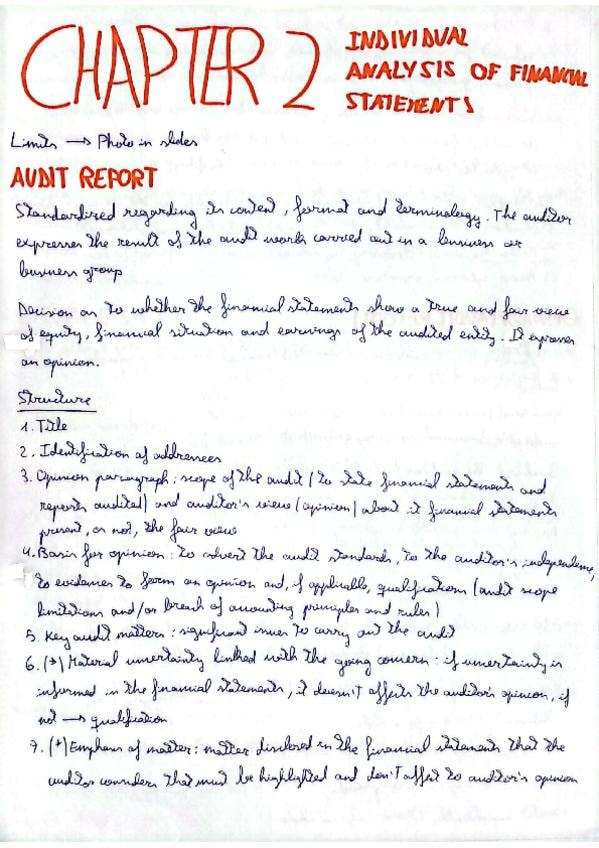 CHAPTER 2
INDIVIDUAL
ANALYSIS OF FINANCIAL
STATEMENTS
Limits → Photo in slides
AUDIT REPORT
Standardized regarding its content, format and terminology. The auditor
expresses the result of the audit works carried out in a business or
business group
Decision as to whether the financial statements show a true and fair view
of equity, financial situation and earnings of the audited entity. It expresses
an opinion.
Structure
1. Title
2. Identification of addressees
3. Opinion paragraph: scope of the audit (to state financial statements and
reports audited) and auditor's view (opinion) about if financial statements
present, or not, the fair view
4. Basis for opinion: to advert the audit standards, to the auditor's independence,
to evidence to form an opinion and, if applicable, qualifications (audit scope
limitations and/or breach of accounting principles and rules)
5. Key audit matters: significant issues to carry out the audit
6. (*) Material uncertainty linked with the going concern: if uncertainty is
informed in the financial statements, it doesn't affects the auditor's opinion, if
not → qualification
7. (*) Emphasis of matter: matter disclosed in the financial statements that the
auditor considers that must be highlighted and don't affect to auditor's opinion